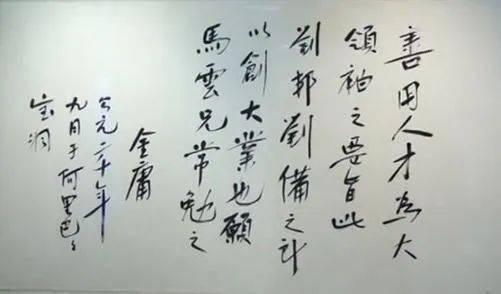 善用人才為大
領袖之要旨此
劉邦劉備之所
以創大業也願
馬雲兄常勉之
金庸
公元二千年
九月于阿里巴々
宝洞